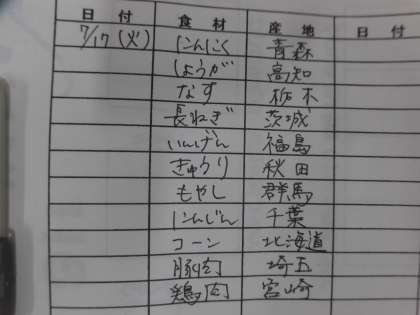 日付 食材 産地 日付
7/17(火) にんにく 青森
しょうが 高知
なす 栃木
長ねぎ 茨城
いんげん 福島
きゅうり 秋田
もやし 群馬
にんじん 千葉
コーン 北海道
豚肉 埼玉
鶏肉 宮崎